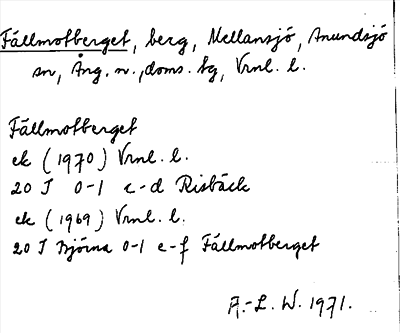 Fällmotberget, berg, Mellansjö, Anundsjö
sn, Ång. n., doms. tg, Vrnl. l.
Fällmotberget
ek (1970) Vrnl. l.
20 J 0-1 c-d Risbäck
ek (1969) Vrnl. l.
20 J Björna 0-1 e-f Fällmotberget
A.-L. W. 1971.